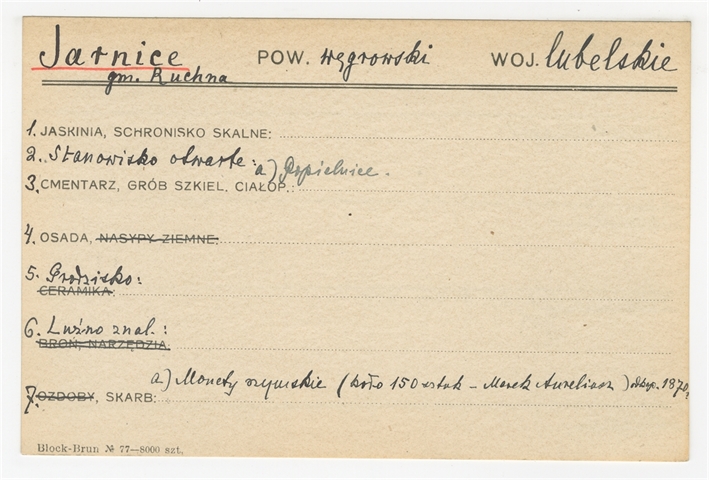 Jarnice POW. węgrowski WOJ. lubelskie
gm. Ruchna
1. JASKINIA, SCHRONISKO SKALNE:
2. Stanowisko otwarte:
a) Popielnice.
3. CMENTARZ, GRÓB SZKIEL. CIAŁOP.:
4. OSADA, NASYPY ZIEMNE:
5. Grodzisko:
CERAMIKA:
6. Luźno znal.:
BROŃ, NARZĘDZIA:
a) Monety rzymskie (koło 150 sztuk - Marek Aureliusz) odkyp. 1870.
7. OZDOBY, SKARB:
Block-Brun № 77—8000 szt.